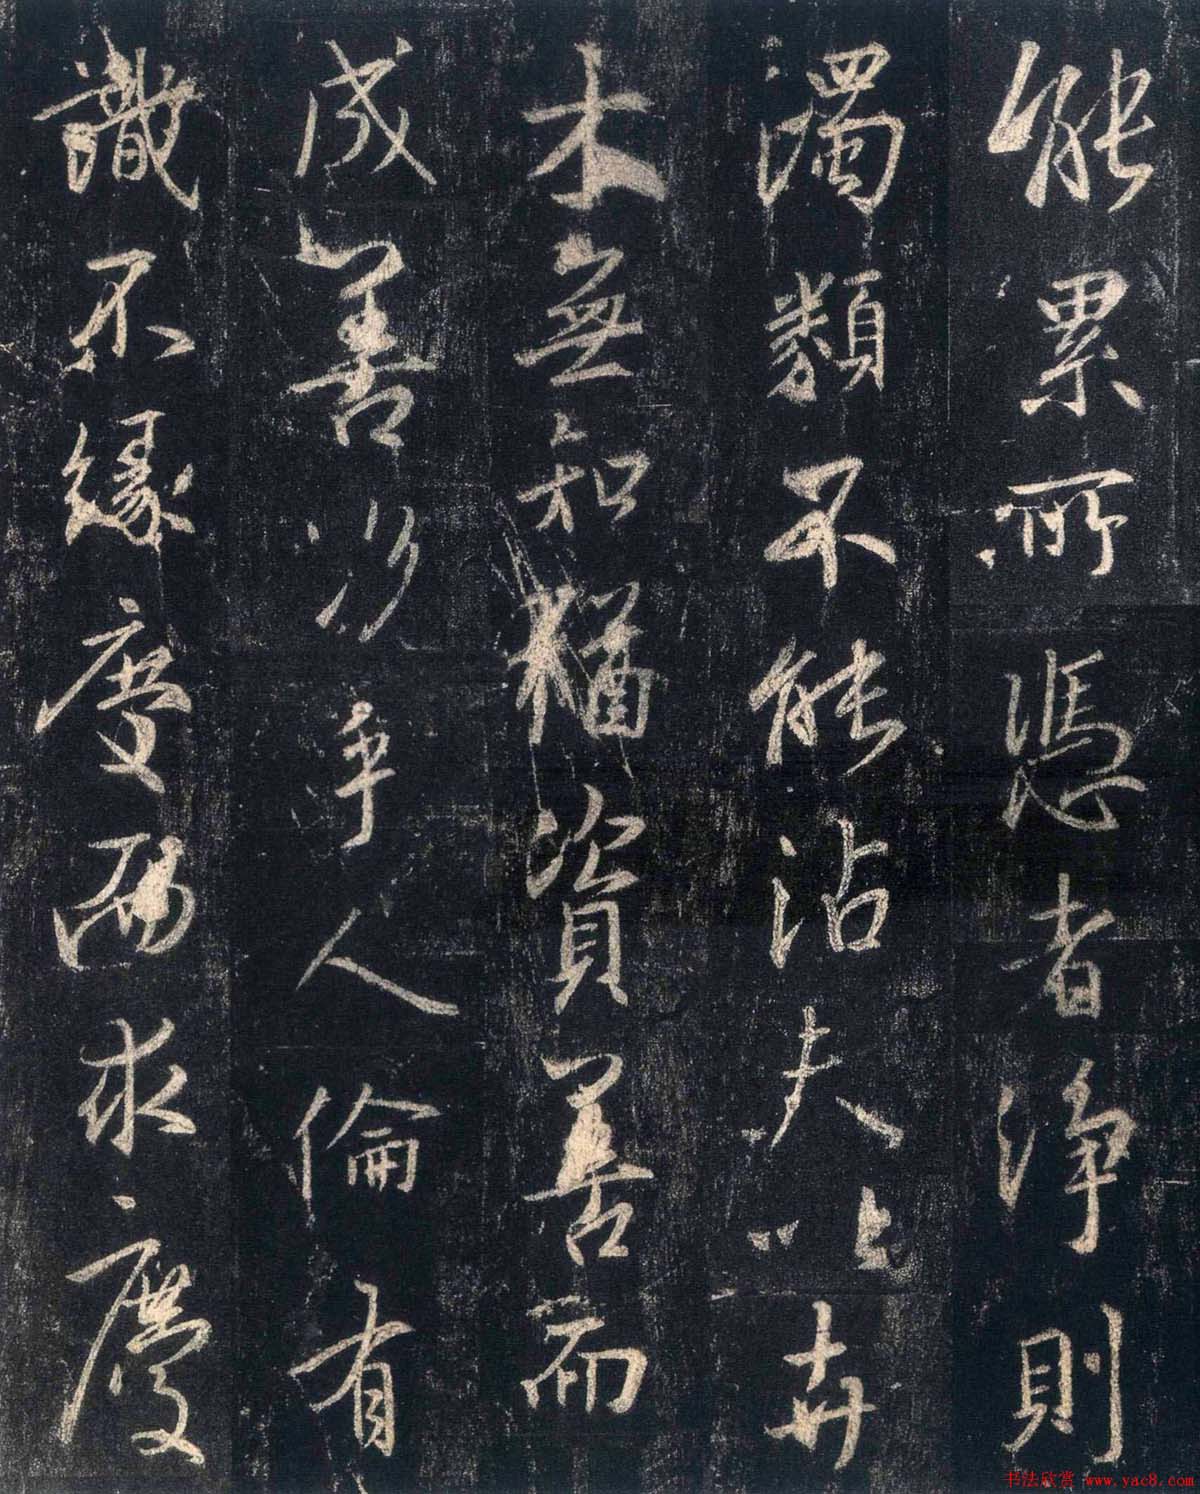 能累所憑者淨則
濁類不能沾夫以卉
木無知猶資善而
成善況乎人倫有
識不緣慶而求慶
书法欣赏 www.yac8.com